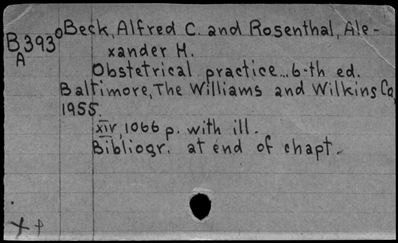 B393⁰ Beck, Alfred C. and Rosenthal, Ale-
A xander H.
Obstetrical practice...6-th ed.
Baltimore, The Williams and Wilkins Co,
1955.
XIV, 1066 p. with ill.
Bibliogr. at end of chapt.